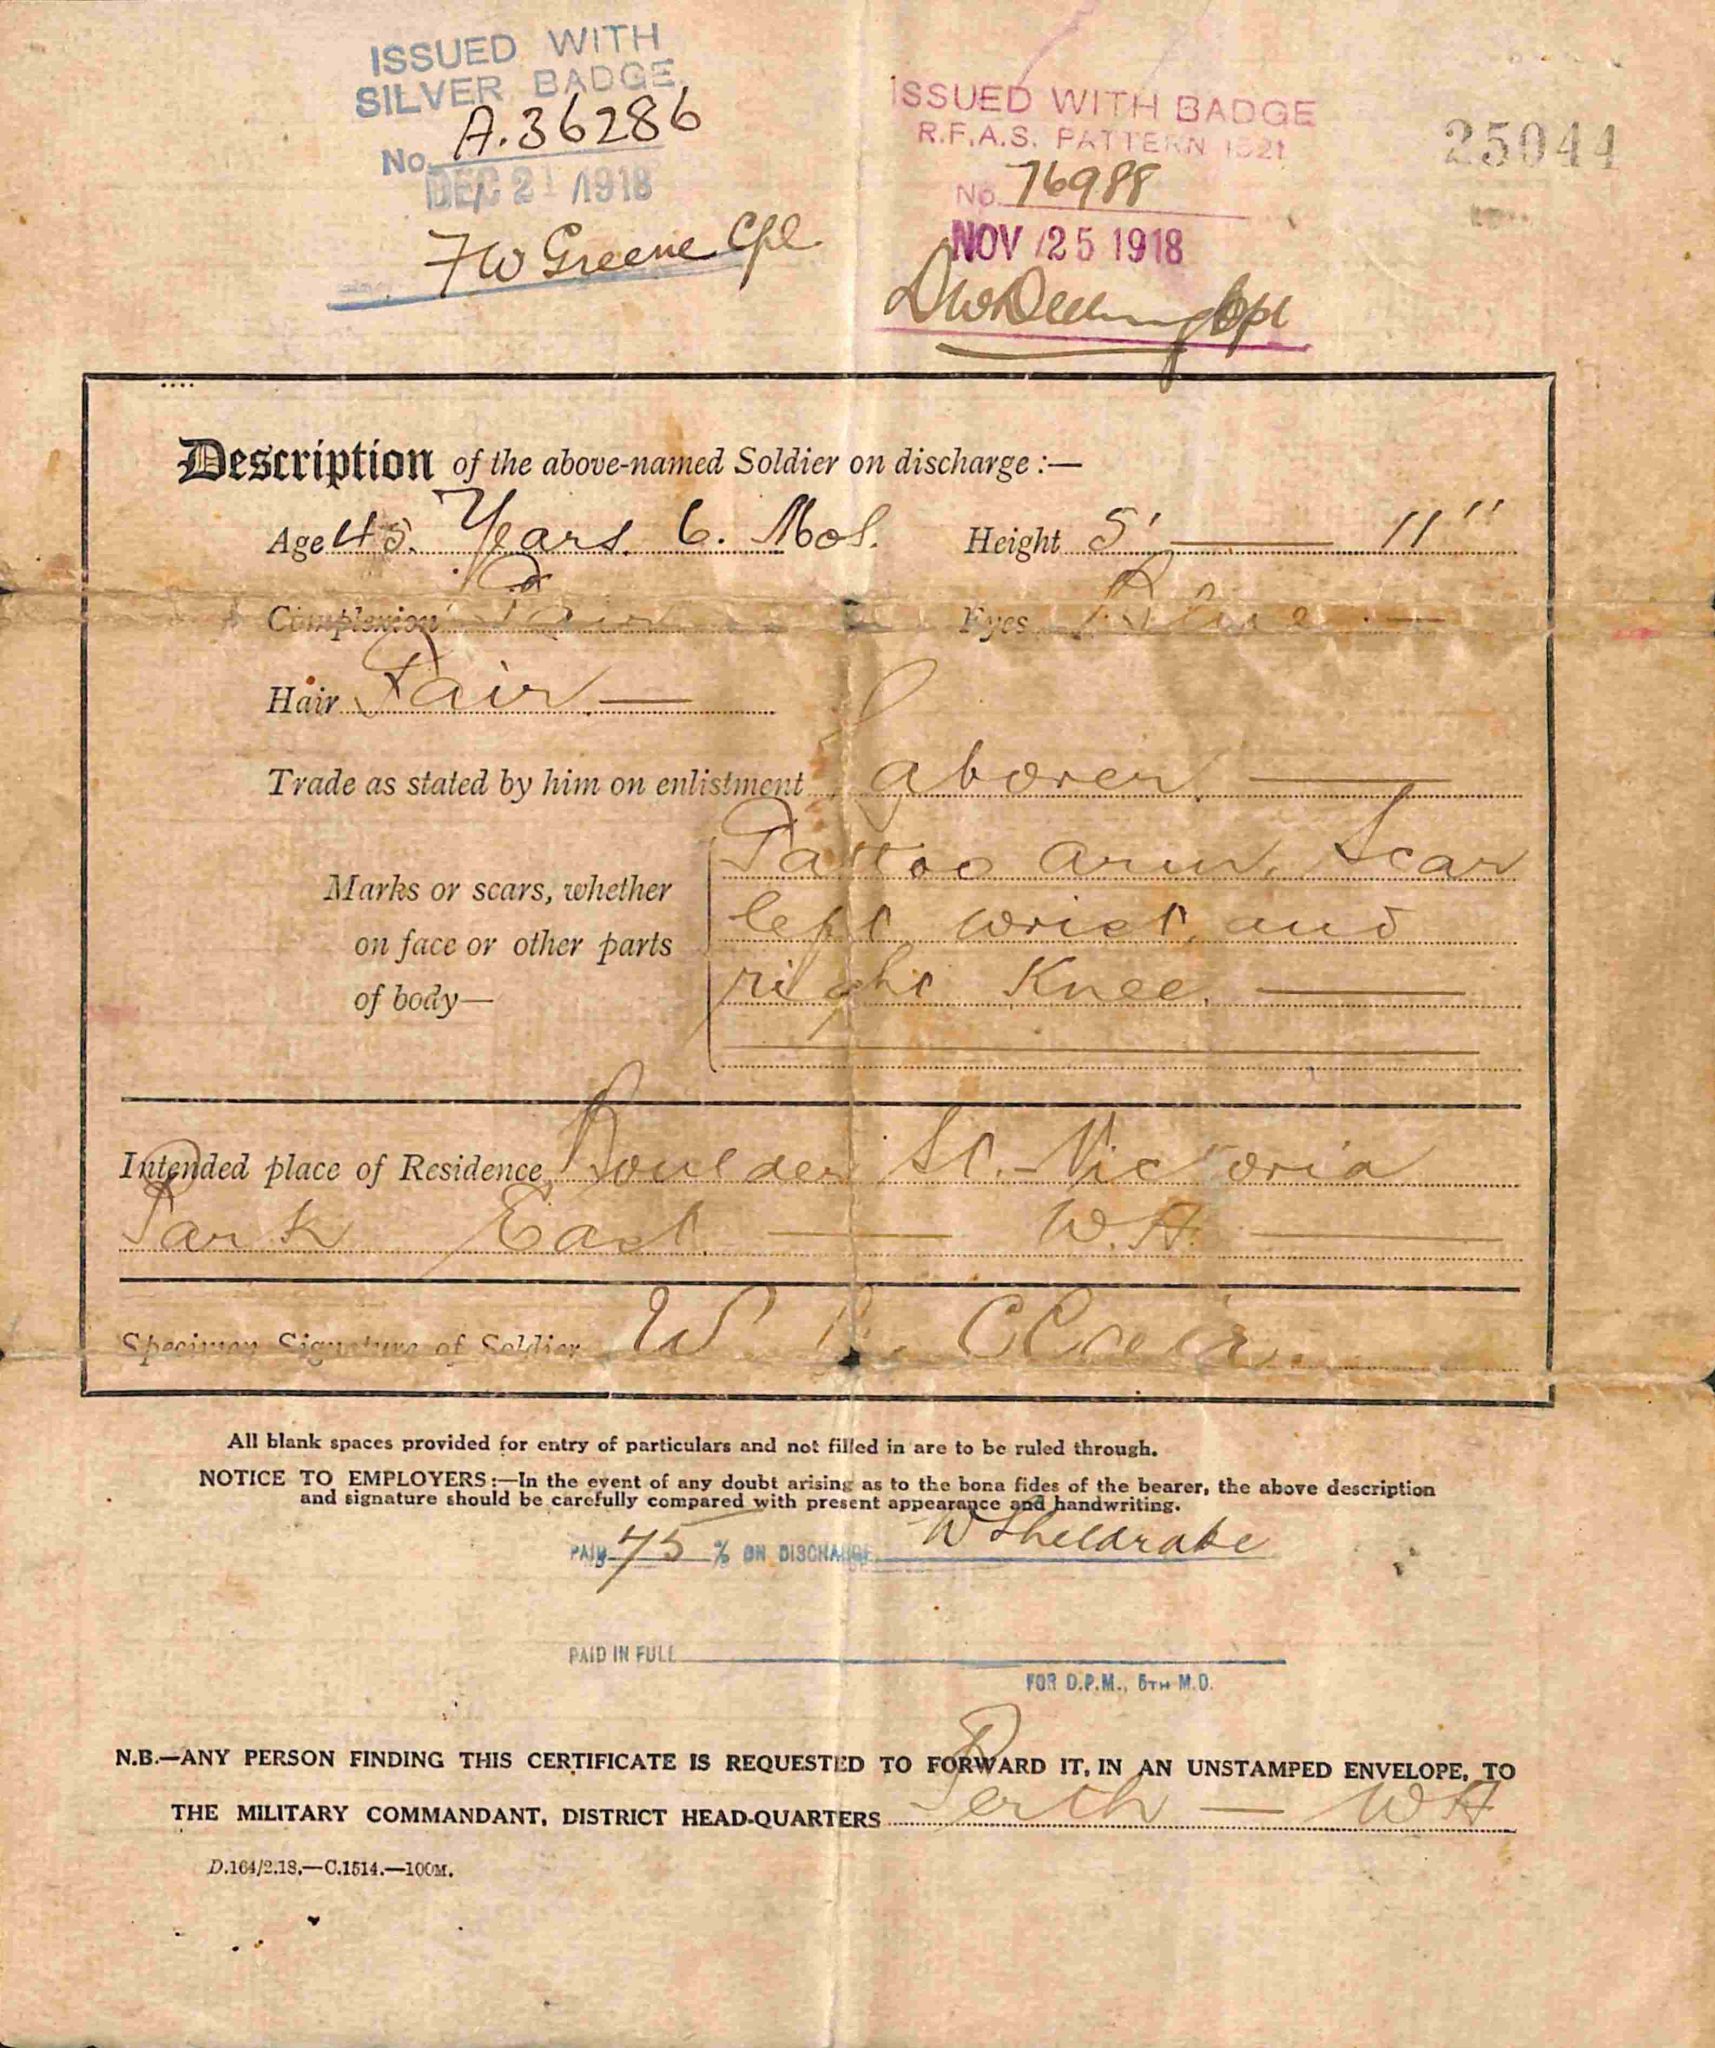 ISSUED WITH
SILVER BADGE
No. A.36286
DEC 21 1918
FW Greene Cpl
ISSUED WITH BADGE
R.F.A.S. PATTERN 1521
No. 76988
NOV 25 1918
Cpl
25044
Description of the above-named Soldier on discharge :—
Age 45. Years. 6. Mos. Height 5' — 11"
Complexion Fair Eyes Blue —
Hair Fair. —
Trade as stated by him on enlistment Laborer. —
Marks or scars, whether on face or other parts of body—
Tattoo arm. Scar
left wrist, and
right Knee. —
Intended place of Residence Boulder St. Victoria
Park East. — W.A. —
Specimen Signature of Soldier W
All blank spaces provided for entry of particulars and not filled in are to be ruled through.
NOTICE TO EMPLOYERS:—In the event of any doubt arising as to the bona fides of the bearer, the above description
and signature should be carefully compared with present appearance and handwriting.
PAID 75 % ON DISCHARGE W Sheldrake
PAID IN FULL
FOR D.P.M., 5TH M.D.
N.B.—ANY PERSON FINDING THIS CERTIFICATE IS REQUESTED TO FORWARD IT, IN AN UNSTAMPED ENVELOPE, TO
THE MILITARY COMMANDANT, DISTRICT HEAD-QUARTERS Perth — WA
D.164/2.18.—C.1514.—100M.